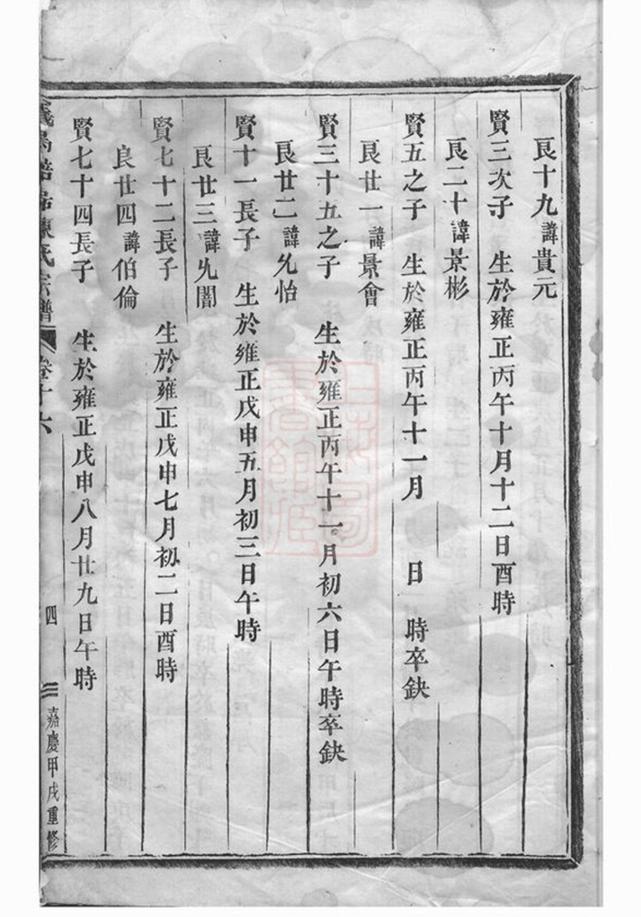 良十九諱貴元
賢三次子　生於雍正丙午十月十二日酉時
良二十諱景彬
賢五之子　生於雍正丙午十一月　日　時卒缺
良廿一諱景會
賢三十五之子　生於雍正丙午十一月初六日午時卒缺
良廿二諱允怡
賢十一長子　生於雍正戊申五月初三日午時
良廿三諱允闇
賢七十二長子　生於雍正戊申七月初二日酉時
良廿四諱伯倫
賢七十四長子　生於雍正戊申八月廿九日午時
陳氏宗譜　卷十六　四　嘉慶甲戌重修